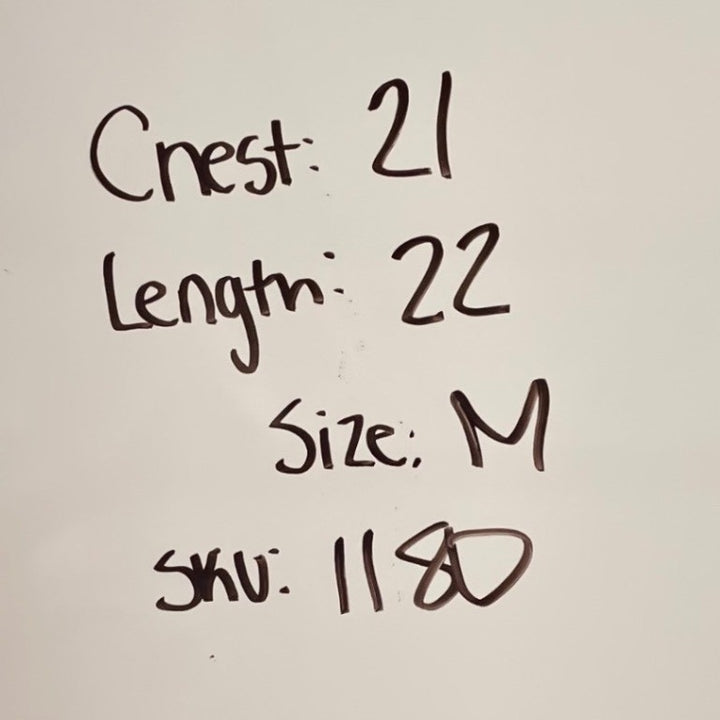 Chest: 21
Length: 22
Size: M
SKU: 1180